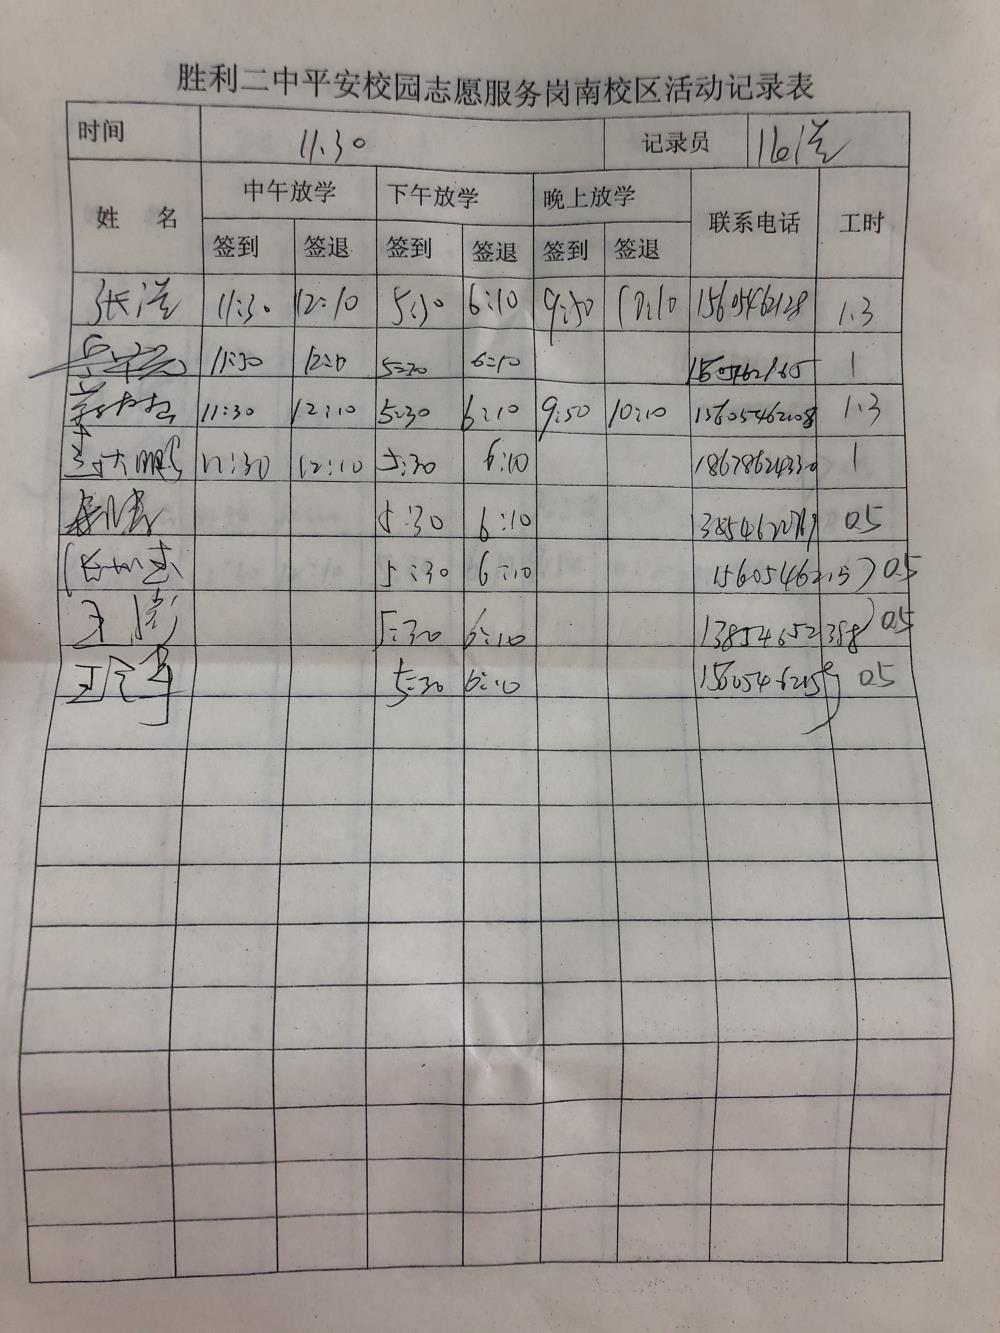 胜利二中平安校园志愿服务岗南校区活动记录表
时间 11.30 记录员
姓 名 中午放学 下午放学 晚上放学 联系电话 工时
签到 签退 签到 签退 签到 签退
张洪 11:30 12:10 5:30 6:10 9:50 10:10 15605462128 1.3
11:30 5:30 6:10 1
11:30 12:10 5:30 6:10 9:50 10:10 15605462108 1.3
大鹏 11:30 12:10 5:30 6:10 18678624330 1
5:30 6:10 0.5
5:30 6:10 0.5
王 5:30 6:10 13854652388 0.5
王 5:30 6:10 0.5